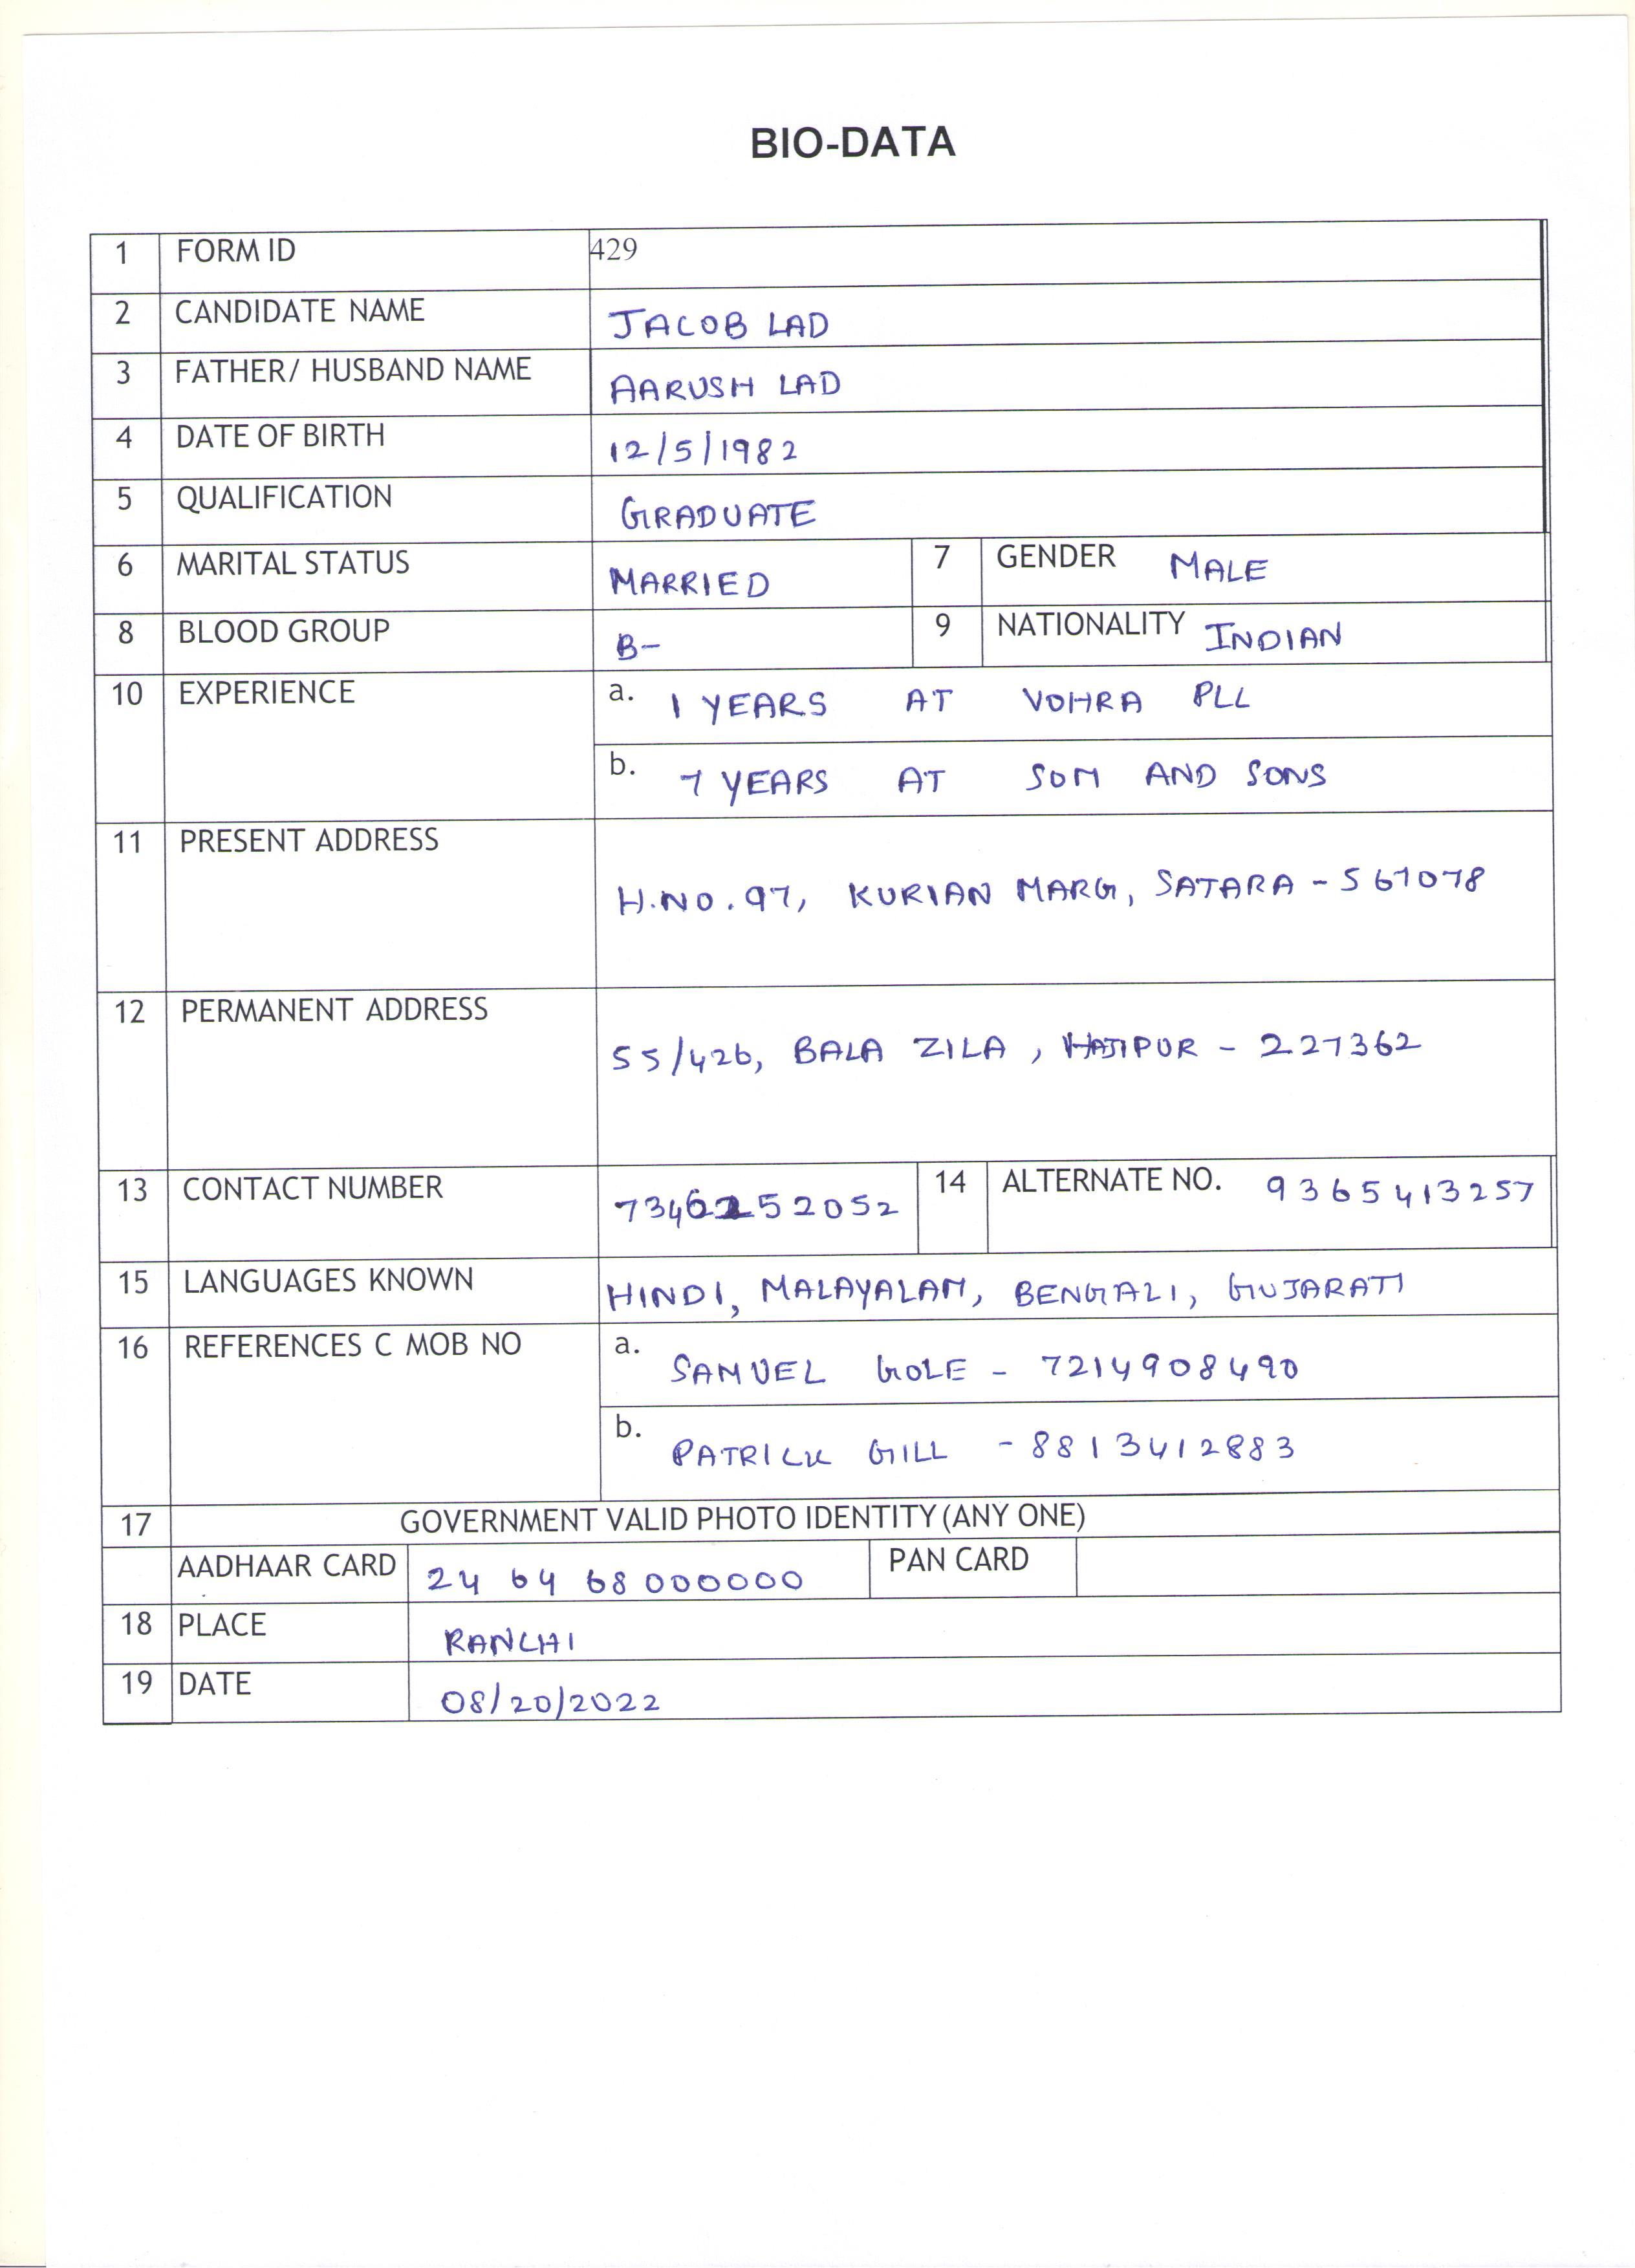 BIO-DATA
1 FORM ID 429
2 CANDIDATE NAME JACOB LAD
3 FATHER/ HUSBAND NAME AARUSH LAD
4 DATE OF BIRTH 12/5/1982
5 QUALIFICATION GRADUATE
6 MARITAL STATUS MARRIED 7 GENDER MALE
8 BLOOD GROUP B- 9 NATIONALITY INDIAN
10 EXPERIENCE a. 1 YEARS AT VOHRA PLL
b. 7 YEARS AT SOM AND SONS
11 PRESENT ADDRESS
H.NO.97, KURIAN MARG, SATARA - 567078
12 PERMANENT ADDRESS
55/426, BALA ZILA, HAJIPUR - 227362
13 CONTACT NUMBER 7346252052 14 ALTERNATE NO. 9365413257
15 LANGUAGES KNOWN HINDI, MALAYALAM, BENGALI, GUJARATI
16 REFERENCES C MOB NO a. SAMUEL GOLE - 7214908490
b. PATRICK GILL - 8813412883
17 GOVERNMENT VALID PHOTO IDENTITY (ANY ONE)
AADHAAR CARD 24 64 68 000000 PAN CARD
18 PLACE RANCHI
19 DATE 08/20/2022